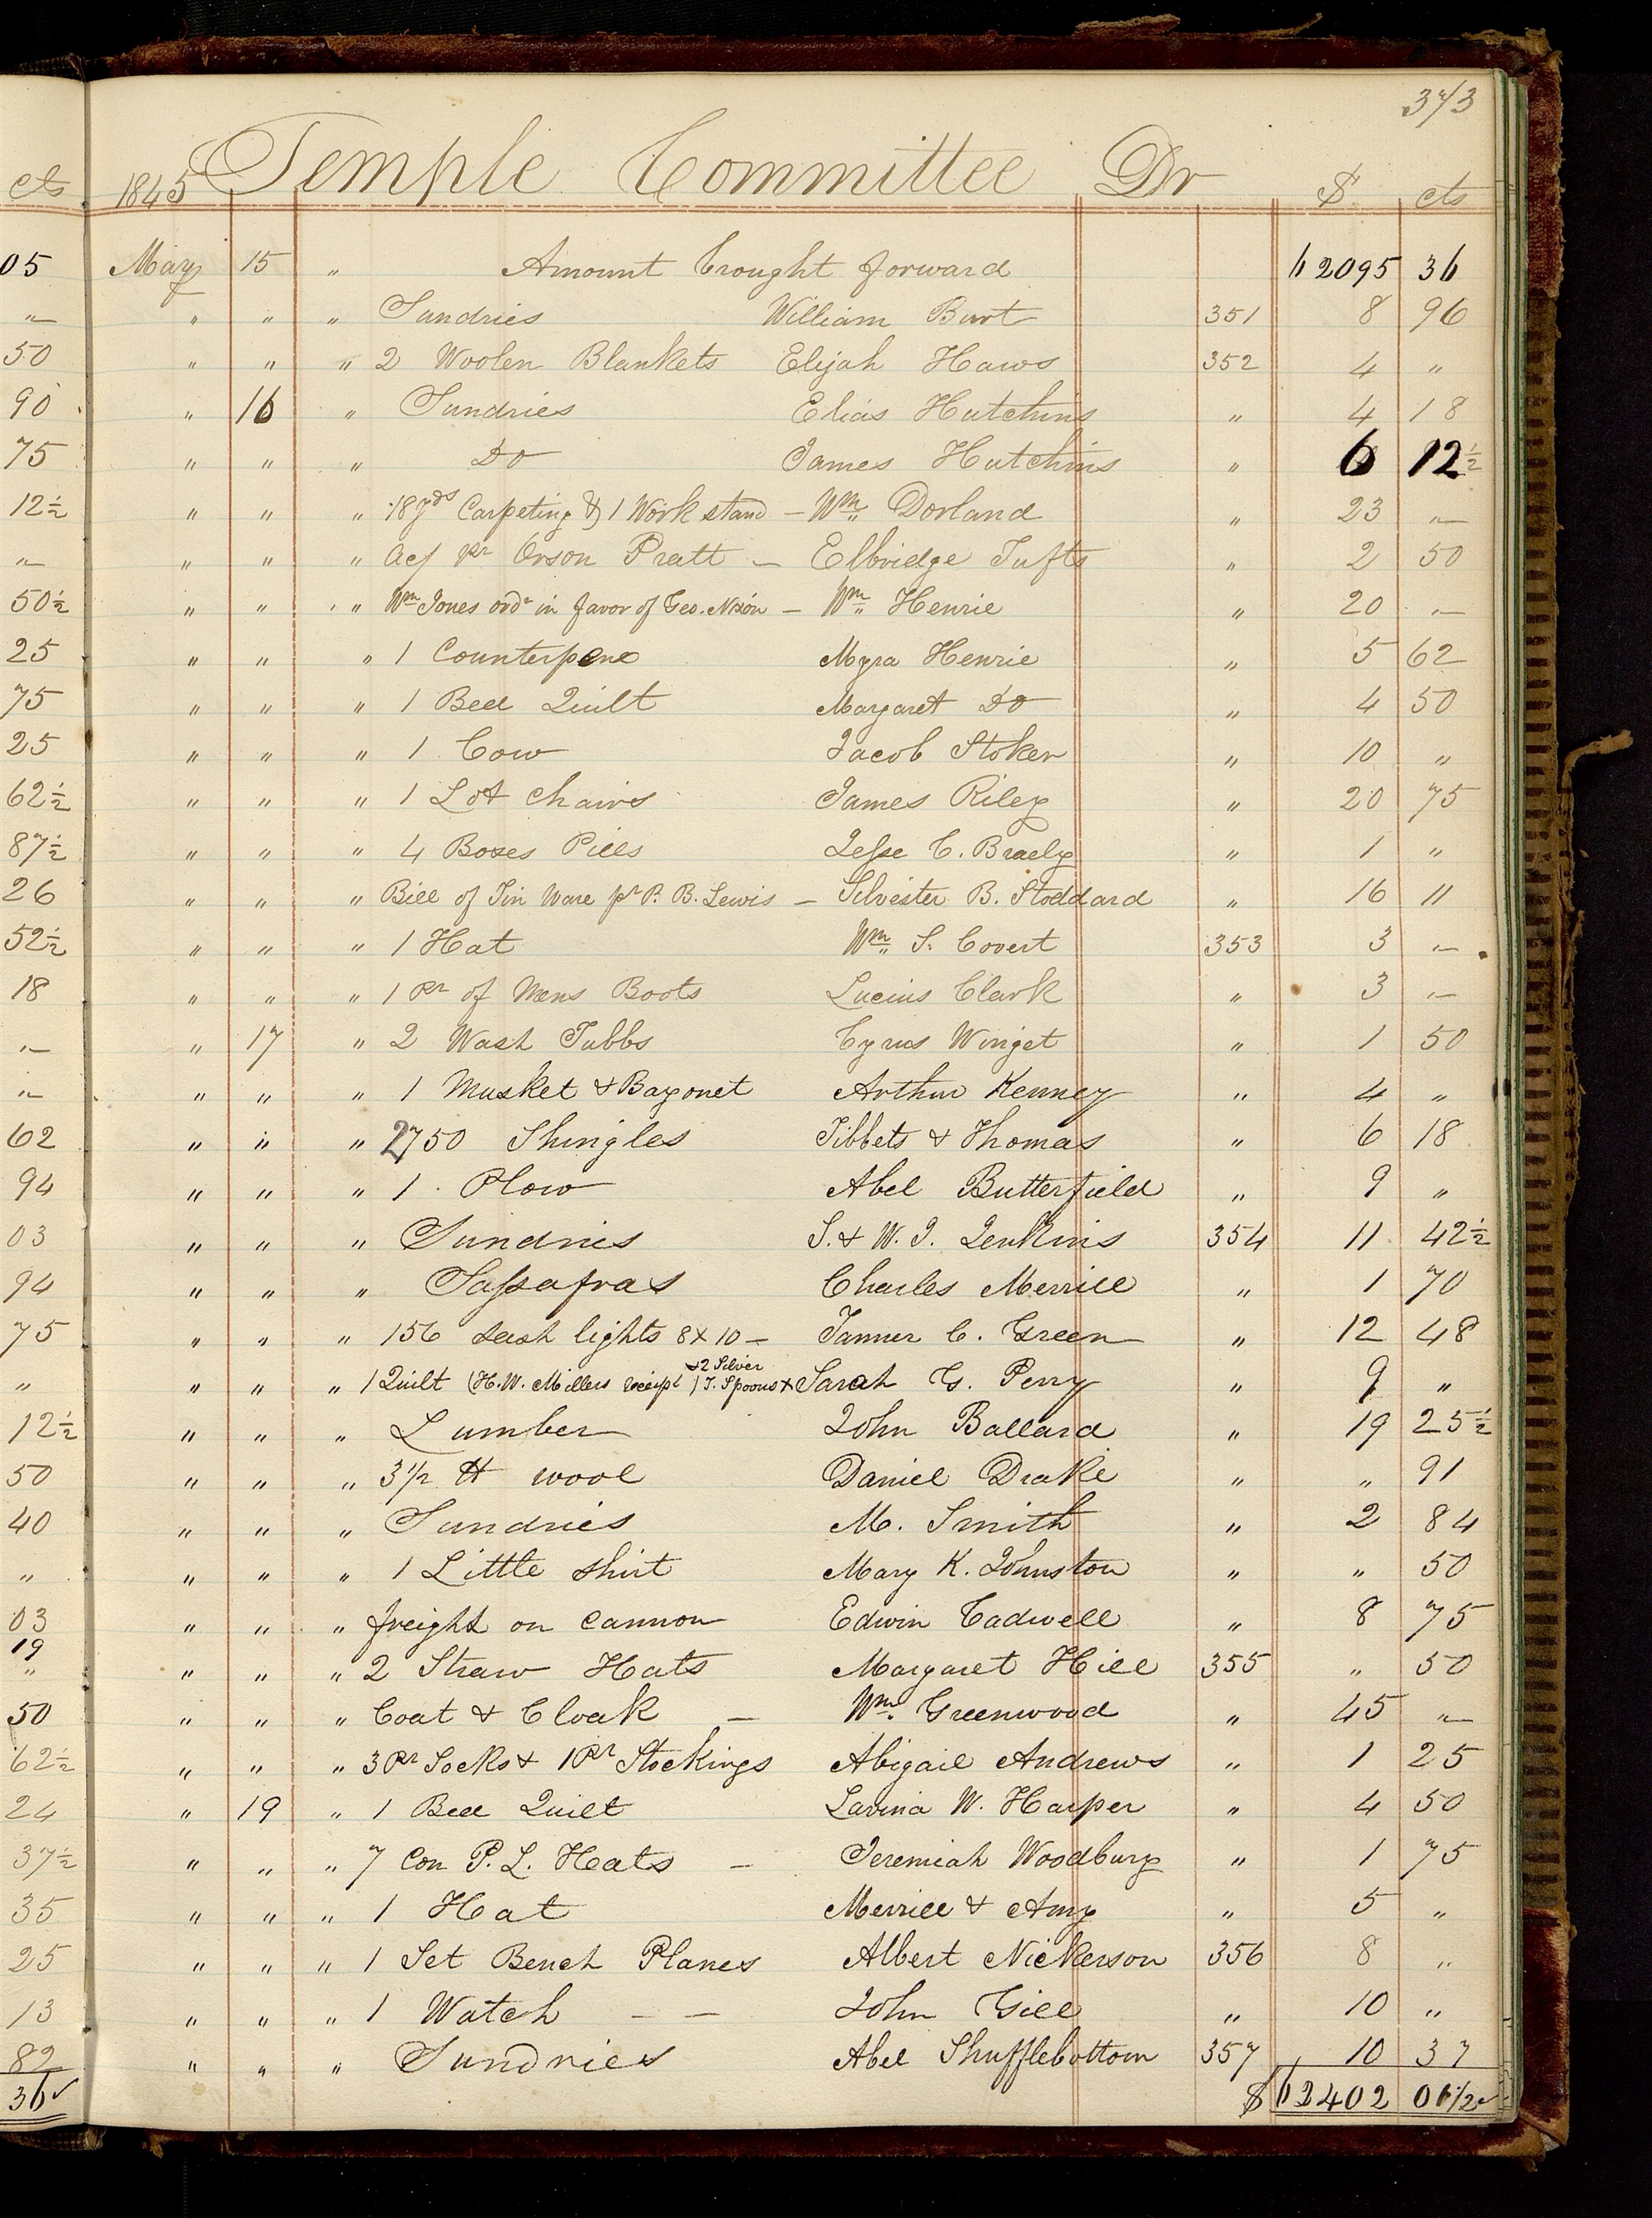 373
cts 1845 Temple Committee Dr $ cts
05 May 15 " Amount brought forward 62095 36
" " " " Sundries William Burt 351 8 96
50 " " " 2 Woolen Blankets Elijah Haws 352 4 "
90 " 16 " Sundries Elias Hutchins " 4 18
75 " " " Do James Hutchins " 6 12½
12½ " " " 18 yds Carpeting & 1 Work stand – Wm Dorland " 23 "
" " " " Acf pr Orson Pratt – Elbridge Tufts " 2 50
50½ " " " Wm Jones ordr in favor of Geo. Nixon – Wm Henrie " 20 "
25 " " " 1 Counterpene Myra Henrie " 5 62
75 " " " 1 Bed Quilt Margaret Do " 4 50
25 " " " 1 Cow Jacob Stoker " 10 "
62½ " " " 1 Lot chairs James Riley " 20 75
87½ " " " 4 Boxes Pills Jesse C. Braely " 1 "
26 " " " Bill of Tin Ware pr P. B. Lewis – Silvester B. Stoddard " 16 11
52½ " " " 1 Hat Wm S. Covert 353 3 "
18 " " " 1 Pr of Mens Boots Lucius Clark " 3 "
" " 17 " 2 Wash Tubbs Cyrus Winget " 1 50
" " " " 1 Musket & Bayonet Arthur Kenney " 4 "
62 " " " 2750 Shingles Tibbets & Thomas " 6 18
94 " " " 1 Plow Abel Butterfield " 9 "
03 " " " Sundries S. & W. J. Jenkins 354 11 42½
94 " " " Sassafras Charles Merrill " 1 70
75 " " " 156 sash lights 8 x 10 – Tanner C. Green " 12 48
& 2 Silver
" " " " 1 Quilt (H. W. Millers receipt) T. Spoons x Sarah G. Perry " 9 "
12½ " " " Lumber John Ballard " 19 25½
50 " " " 3½ lb wool Daniel Drake " " 91
40 " " " Sundries M. Smith " 2 84
" " " " 1 Little shirt Mary K. Johnston " " 50
03 " " " freight on cannon Edwin Cadwell " 8 75
19
" " " " 2 Straw Hats Margaret Hill 355 " 50
50 " " " Coat & Cloak – Wm Greenwood " 45 "
62½ " " " 3 Pr Socks & 1 Pr Stockings Abigail Andrews " 1 25
24 " 19 " 1 Bed Quilt Lavina W. Harper " 4 50
37½ " " " 7 Com P. L. Hats – Jeremiah Woodbury " 1 75
35 " " " 1 Hat Merrill & Amy " 5 "
25 " " " 1 Set Bench Planes Albert Nickerson 356 8 "
13 " " " 1 Watch – – John Gill " 10 "
82 " " " Sundries Abel Shufflebottom 357 10 37
36 $ 62402 01½